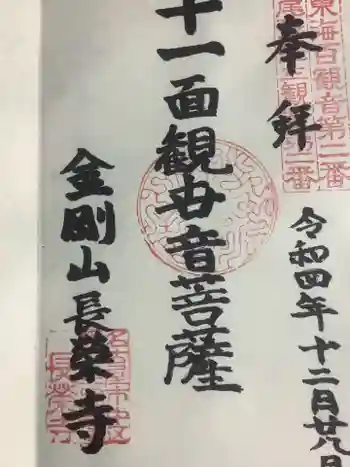 東海百観音第二番
尾三観音第二番
奉拝
令和四年十二月廿八日
十一面観世音菩薩
金剛山長榮寺